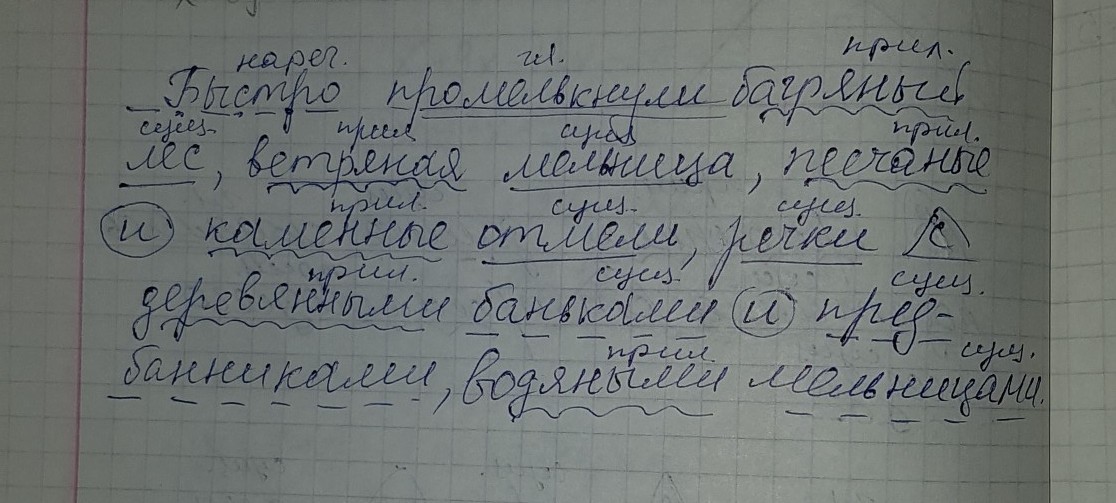 нареч. гл. прил.
Быстро промелькнули багряный
сущ. прил. сущ. прил.
лес, ветряная мельница, песчаные
прил. сущ. сущ.
и каменные отмели, речки с
прил. сущ. сущ.
деревянными баньками и пред-
прил. сущ.
банниками, водяными мельницами.